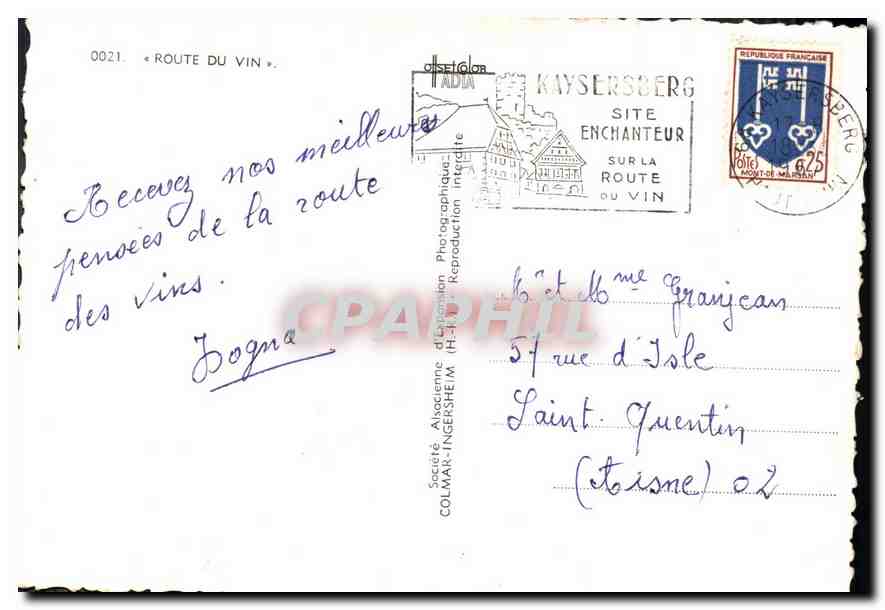 0021. « ROUTE DU VIN ».
Recevez nos meilleures
pensées de la route
des vins.
Société Alsacienne d'Expansion Photographique
COLMAR-INGERSHEIM (H.-R.) - Reproduction interdite
KAYSERSBERG
SITE
ENCHANTEUR
SUR LA
ROUTE
DU VIN
REPUBLIQUE FRANÇAISE
POSTES 0,25
MONT-DE-MARSAN
KAYSERSBERG
Mr et Mme Granjean
57 rue d'Isle
Saint-Quentin
(Aisne) 02
CPAPHIL